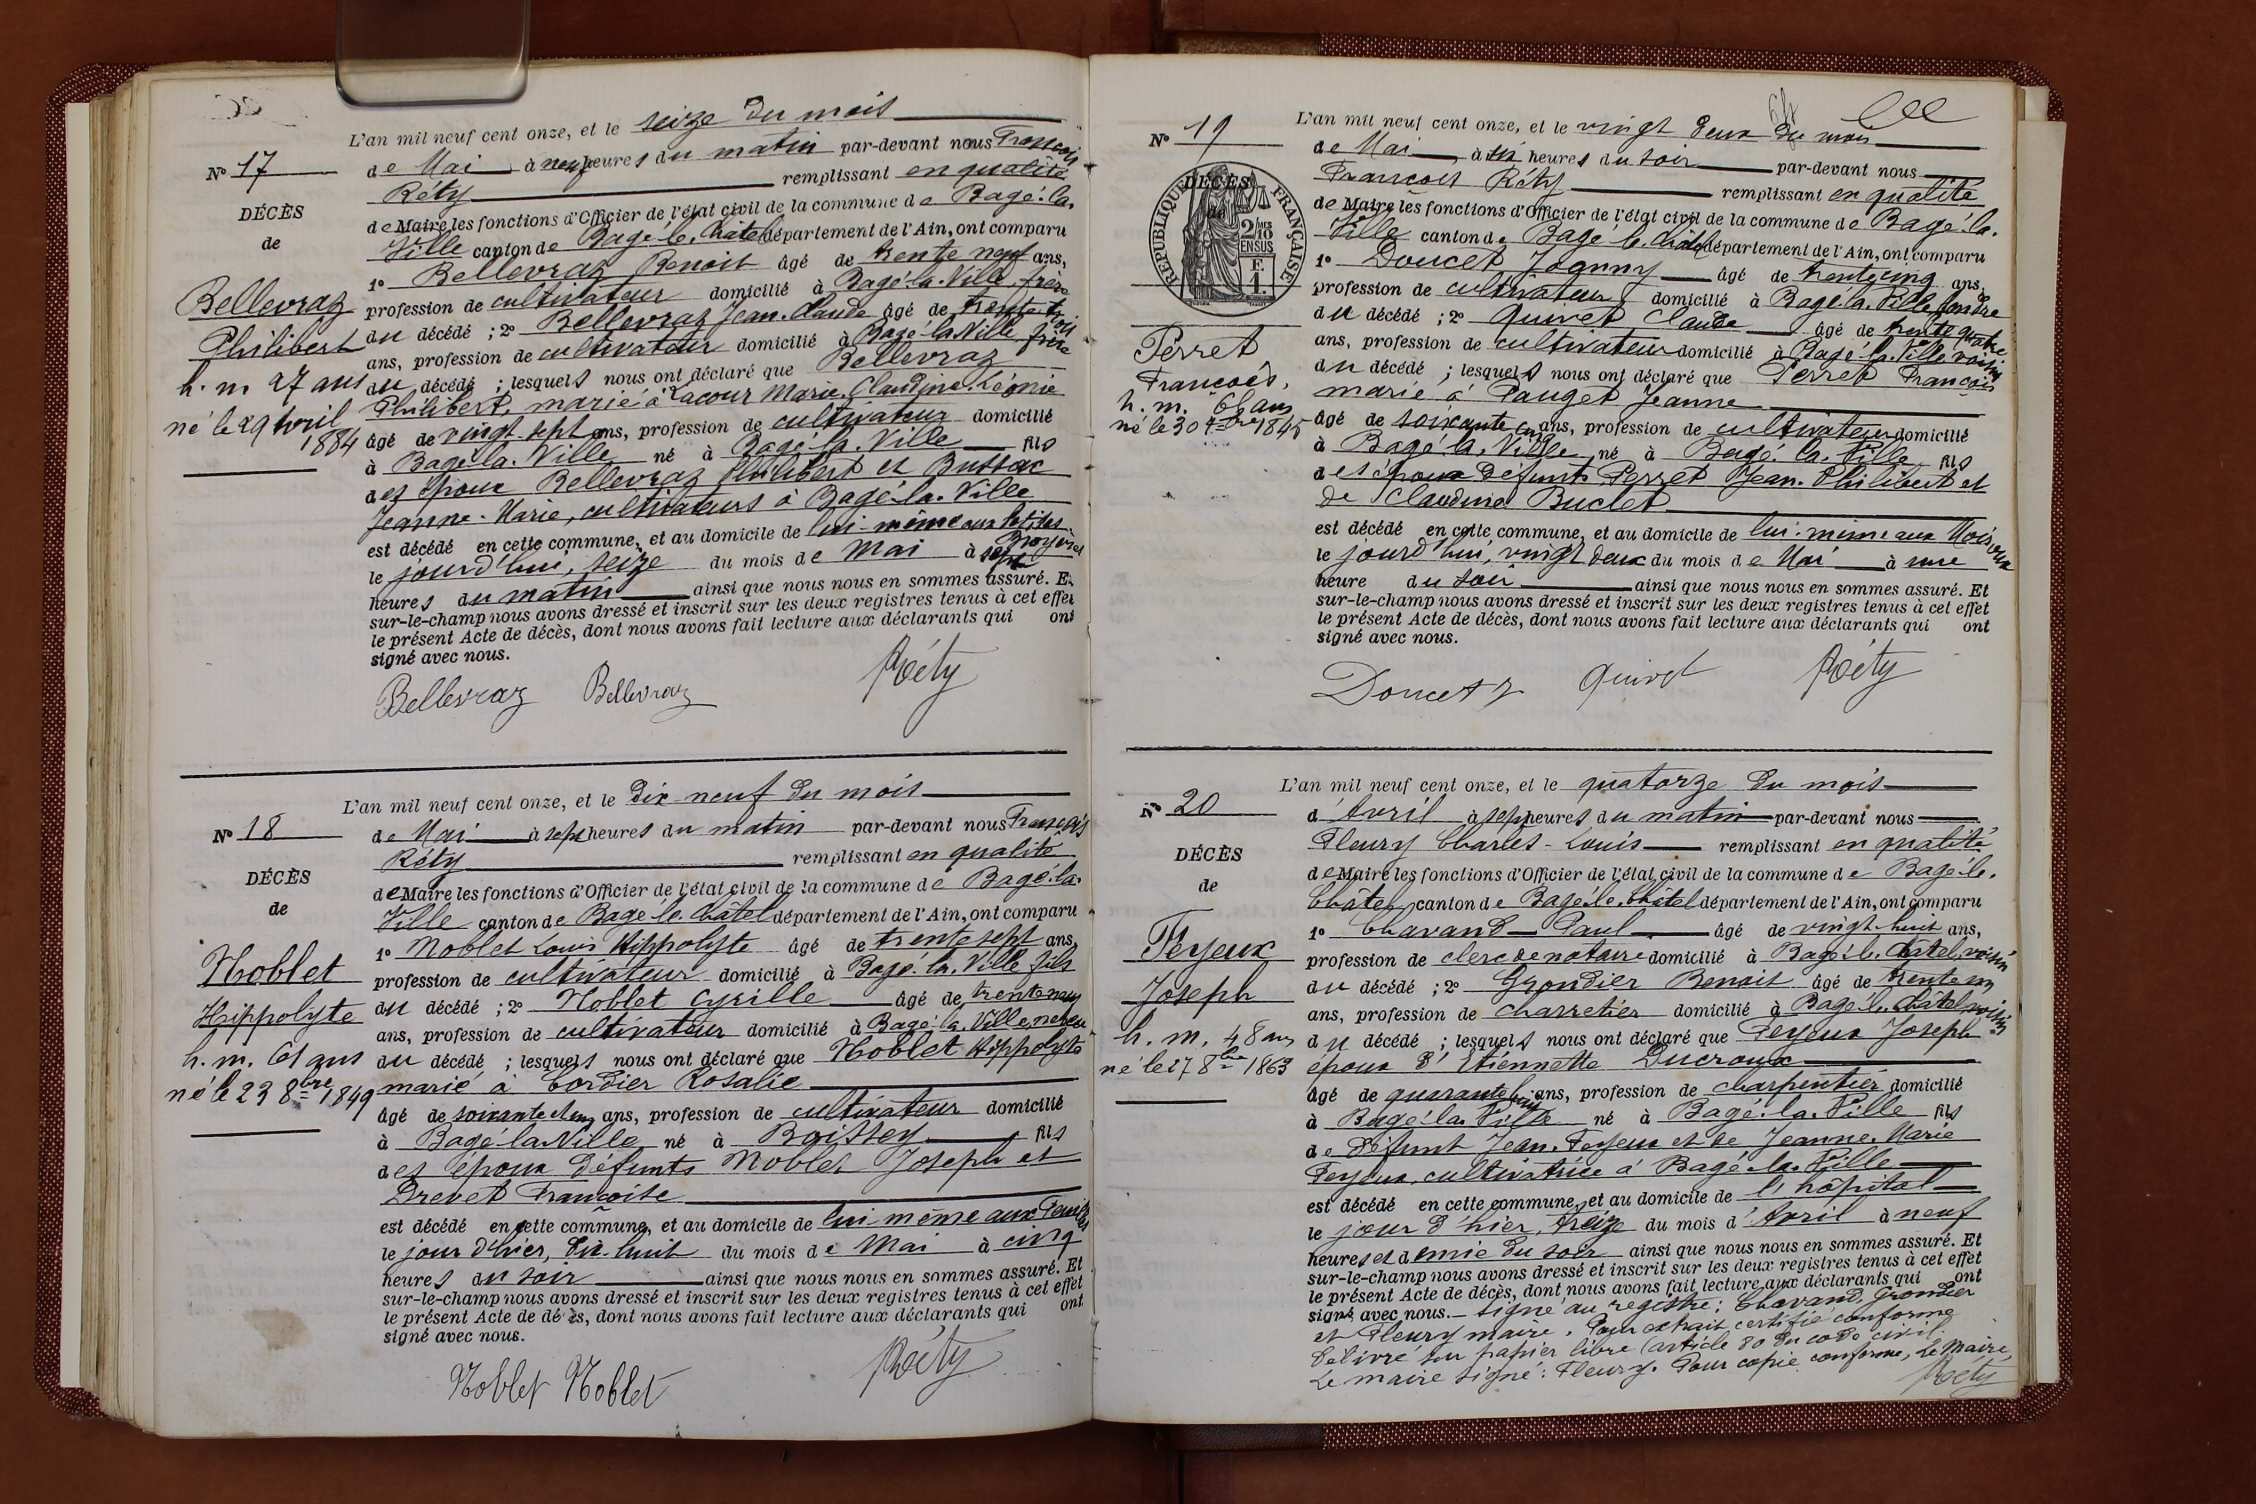 L'an mil neuf cent onze, et le seize du mois
N° 17
de Mai à neuf heures du matin par-devant nous François
Réty remplissant en qualité
DÉCÈS
de Maire les fonctions d'Officier de l'état civil de la commune de Bagé-la-
de
Ville canton de Bagé-le-Châtel département de l'Ain, ont comparu
1° Bellevraz Benoit âgé de trente neuf ans,
Bellevraz
profession de cultivateur domicilié à Bagé-la-Ville frère
du décédé ; 2° Bellevraz Jean-Claude âgé de trente trois
Philibert
ans, profession de cultivateur domicilié à Bagé-la-Ville frère
h. m. 27 ans
du décédé ; lesquels nous ont déclaré que Bellevraz
Philibert, marié à Lacour Marie-Claudine-Léonie
né le 29 Avril
1884
âgé de vingt-sept ans, profession de cultivateur domicilié
à Bagé-la-Ville né à Bagé-la-Ville fils
des époux Bellevraz Philibert et Buttac
Jeanne-Marie, cultivateurs à Bagé-la-Ville
est décédé en cette commune, et au domicile de lui-même aux petites
Broyères
le jourd'hui, seize du mois de Mai à sept
heures du matin ainsi que nous nous en sommes assuré. Et
sur-le-champ nous avons dressé et inscrit sur les deux registres tenus à cet effet
le présent Acte de décès, dont nous avons fait lecture aux déclarants qui ont
signé avec nous.
Bellevraz Bellevraz Réty
L'an mil neuf cent onze, et le dix-neuf du mois
N° 18
de Mai à sept heures du matin par-devant nous François
Réty remplissant en qualité
DÉCÈS
de Maire les fonctions d'Officier de l'état civil de la commune de Bagé-la-
de
Ville canton de Bagé-le-Châtel département de l'Ain, ont comparu
1° Noblet Louis Hippolyte âgé de trente sept ans,
Noblet
profession de cultivateur domicilié à Bagé-la-Ville fils
Hippolyte
du décédé ; 2° Noblet Cyrille âgé de trente neuf
ans, profession de cultivateur domicilié à Bagé-la-Ville neveu
h. m. 61 ans
du décédé ; lesquels nous ont déclaré que Noblet Hippolyte
né le 23 8bre 1849
marié à Cordier Rosalie
âgé de soixante et un ans, profession de cultivateur domicilié
à Bagé-la-Ville né à Boissey fils
des époux défunts Noblet Joseph et
Drevet Françoise
est décédé en cette commune, et au domicile de lui-même aux
le jour d'hier, dix-huit du mois de Mai à cinq
heures du soir ainsi que nous nous en sommes assuré. Et
sur-le-champ nous avons dressé et inscrit sur les deux registres tenus à cet effet
le présent Acte de décès, dont nous avons fait lecture aux déclarants qui ont
signé avec nous.
Noblet Noblet Réty
L'an mil neuf cent onze, et le vingt deux du mois
N° 19
de Mai à six heures du soir par-devant nous
François Réty remplissant en qualité
RÉPUBLIQUE FRANÇAISE
2/10 MES
EN SUS
F.
1.
DÉCÈS
de
de Maire les fonctions d'Officier de l'état civil de la commune de Bagé-la-
Ville canton de Bagé-le-Châtel département de l'Ain, ont comparu
1° Doucet Joanny âgé de trente cinq ans,
profession de cultivateur domicilié à Bagé-la-Ville gendre
du décédé ; 2° Quivet Claude âgé de trente quatre
Perret
ans, profession de cultivateur domicilié à Bagé-la-Ville voisin
François,
du décédé ; lesquels nous ont déclaré que Perret François
h. m. 65 ans
marié à Pauget Jeanne
né le 30 1845
âgé de soixante cinq ans, profession de cultivateur domicilié
à Bagé-la-Ville né à Bagé-la-Ville fils
des époux défunts Perret Jean-Philibert et
de Claudine Buclet
est décédé en cette commune, et au domicile de lui-même aux
le jourd'hui, vingt deux du mois de Mai à une
heure du soir ainsi que nous nous en sommes assuré. Et
sur-le-champ nous avons dressé et inscrit sur les deux registres tenus à cet effet
le présent Acte de décès, dont nous avons fait lecture aux déclarants qui ont
signé avec nous.
Doucet J Quivet Réty
L'an mil neuf cent onze, et le quatorze du mois
N° 20
d'Avril à sept heures du matin par-devant nous
Fleury Charles-Louis remplissant en qualité
DÉCÈS
de Maire les fonctions d'Officier de l'état civil de la commune de Bagé-le-
de
Châtel canton de Bagé-le-Châtel département de l'Ain, ont comparu
1° Chavand Paul âgé de vingt-huit ans,
Feyeux
profession de clerc de notaire domicilié à Bagé-le-Châtel, voisin
Joseph
du décédé ; 2° Grondier Benoit âgé de trente un
ans, profession de charretier domicilié à Bagé-le-Châtel, voisin
h. m. 48 ans
du décédé ; lesquels nous ont déclaré que Feyeux Joseph
né le 27 8bre 1863
époux d'Etiennette Ducroux
âgé de quarante huit ans, profession de charpentier domicilié
à Bagé-la-Ville né à Bagé-la-Ville fils
de défunt Jean Feyeux et de Jeanne-Marie
Feyeux, cultivatrice à Bagé-la-Ville
est décédé en cette commune, et au domicile de l'hôpital
le jour d'hier, treize du mois d'Avril à neuf
heures et demie du soir ainsi que nous nous en sommes assuré. Et
sur-le-champ nous avons dressé et inscrit sur les deux registres tenus à cet effet
le présent Acte de décès, dont nous avons fait lecture aux déclarants qui ont
signé avec nous. signé au registre : Chavand, Grondier
et Fleury maire. Pour extrait certifié conforme
délivré sur papier libre (article 80 du code civil.
Le maire signé : Fleury. Pour copie conforme, Le Maire,
Réty